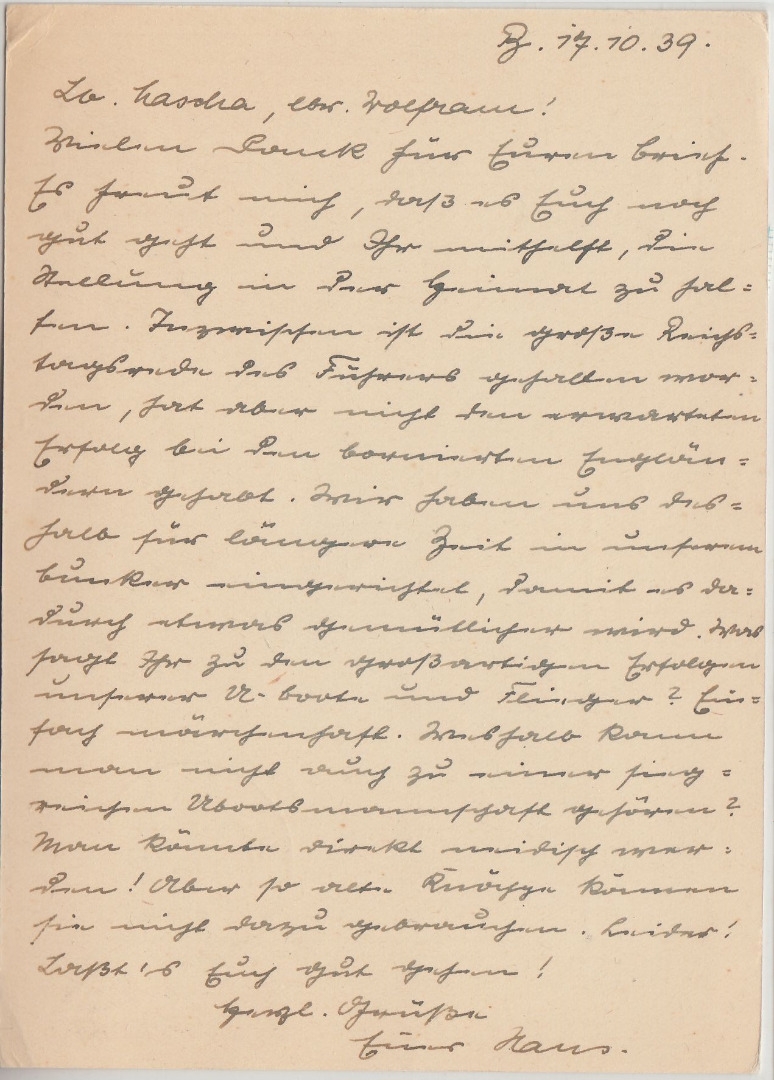 B. 17.10.39.
Lb. Mascha, lbr. Wolfram!
Vielen Dank für Euren Brief.
Es freut mich, daß es Euch noch
gut geht und Ihr mithelft, die
Stellung in der Heimat zu hal=
ten. Inzwischen ist die große Reichs=
tagsrede des Führers gehalten wor=
den, hat aber nicht den erwarteten
Erfolg bei den bornierten Englän=
dern gehabt. Wir haben uns des=
halb für längere Zeit in unserem
Bunker eingerichtet, damit es da=
durch etwas gemütlicher wird. Was
sagt Ihr zu den großartigen Erfolgen
unserer U-Boote und Flieger? Ein=
fach märchenhaft. Weshalb kann
man nicht auch zu einer sieg=
reichen Ubootsmannschaft gehören?
Man könnte direkt neidisch wer=
den! Aber so alte Knöchge können
sie nicht dazu gebrauchen. Leider!
Laßt's Euch gut gehen!
Herzl. Grüße
Euer Hans.